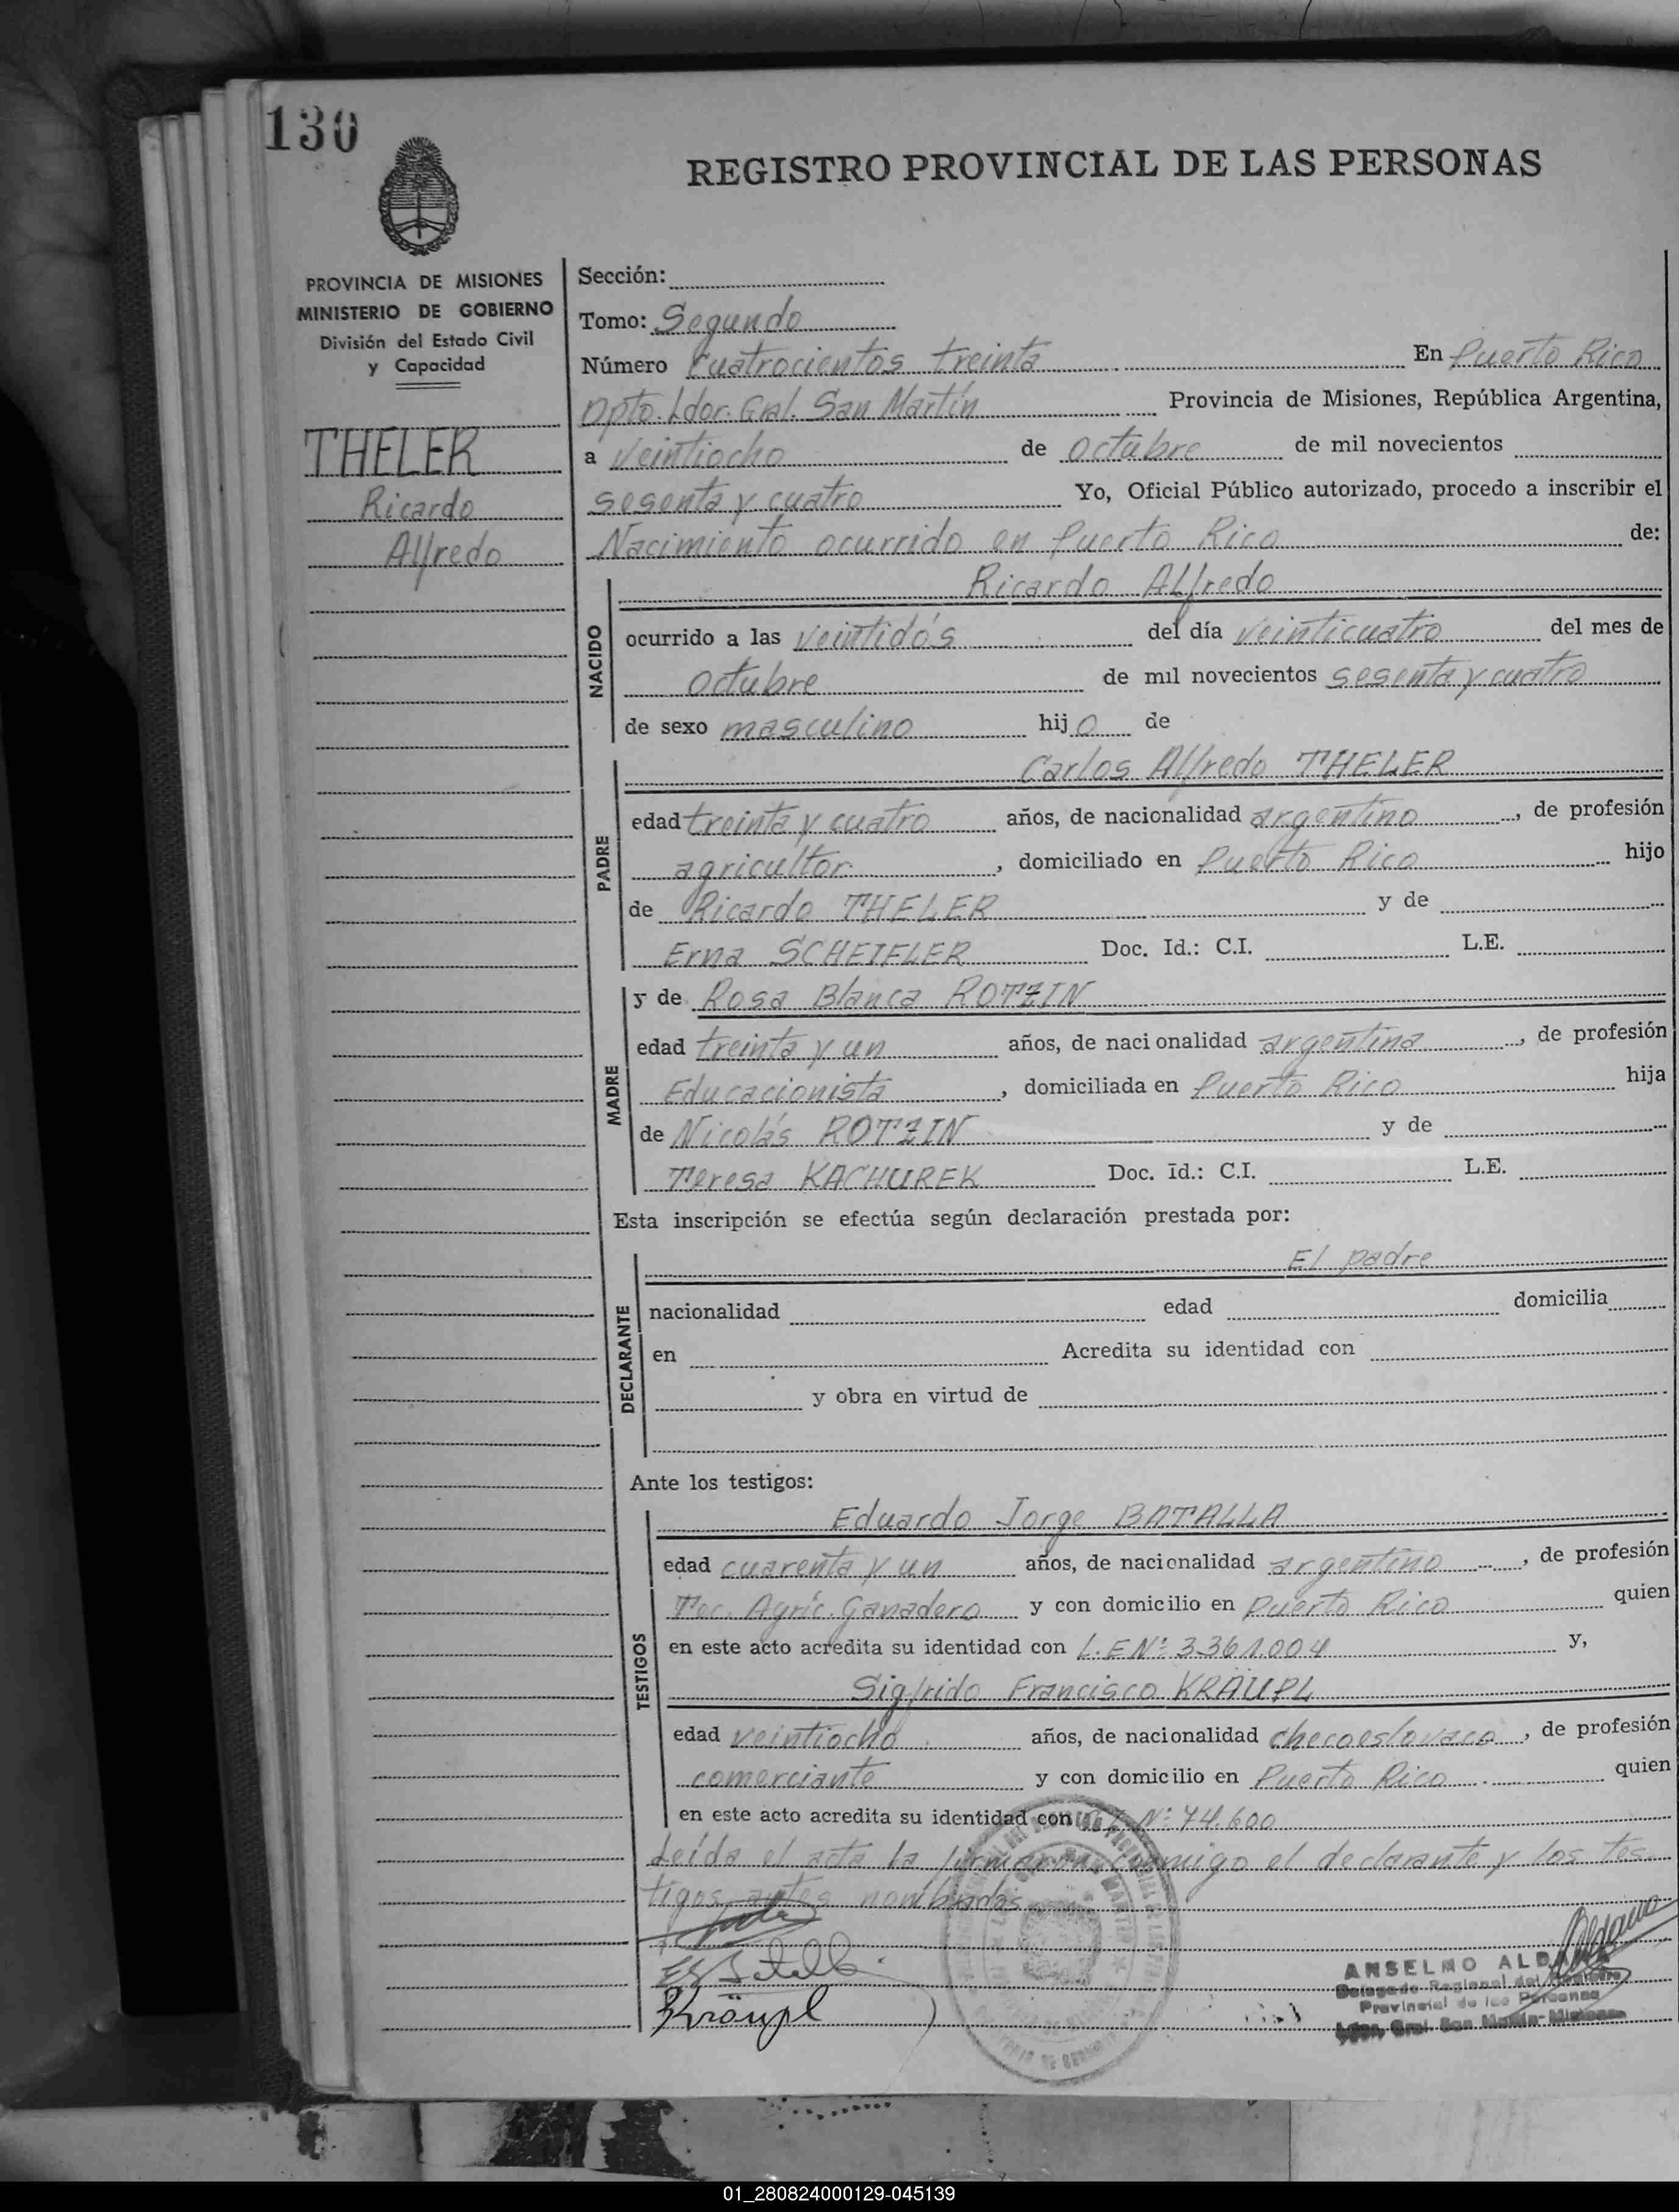 130
REGISTRO PROVINCIAL DE LAS PERSONAS
PROVINCIA DE MISIONES
MINISTERIO DE GOBIERNO
División del Estado Civil
y Capacidad
THELER
Ricardo
Alfredo
Sección:
Tomo: Segundo
Número Cuatrocientos treinta En Puerto Rico
Dpto. Ldor. Gral. San Martín Provincia de Misiones, República Argentina,
a veintiocho de octubre de mil novecientos
sesenta y cuatro Yo, Oficial Público autorizado, procedo a inscribir el
Nacimiento ocurrido en Puerto Rico de:
NACIDO
Ricardo Alfredo
ocurrido a las veintidós del día veinticuatro del mes de
octubre de mil novecientos sesenta y cuatro
de sexo masculino hijo de
PADRE
Carlos Alfredo THELER
edad treinta y cuatro años, de nacionalidad argentino, de profesión
agricultor, domiciliado en Puerto Rico hijo
de Ricardo THELER y de
Erna SCHEIFLER Doc. Id.: C.I. L.E.
MADRE
y de Rosa Blanca ROTZIN
edad treinta y un años, de naci onalidad argentina, de profesión
Educacionista, domiciliada en Puerto Rico hija
de Nicolás ROTZIN y de
Teresa KACHUREK Doc. Id.: C.I. L.E.
Esta inscripción se efectúa según declaración prestada por:
DECLARANTE
El padre
nacionalidad edad domicilia
en Acredita su identidad con
y obra en virtud de
Ante los testigos:
TESTIGOS
Eduardo Jorge BATALLA
edad cuarenta y un años, de nacionalidad argentino, de profesión
Tec. Agríc. Ganadero y con domicilio en Puerto Rico quien
en este acto acredita su identidad con L.E Nº: 3361.004 y,
Sigfrido Francisco KRÄUPL
edad veintiocho años, de nacionalidad checoeslovaco, de profesión
comerciante y con domicilio en Puerto Rico quien
en este acto acredita su identidad con Nº: 74.600
Leída el acta la firmaron conmigo el declarante y los tes-
tigos antes nombrados
Kräupl
ANSELMO
Delegado Regional del Registro
Provincial de las Personas
Ldor. Gral. San Martín-Misiones
01_280824000129-045139